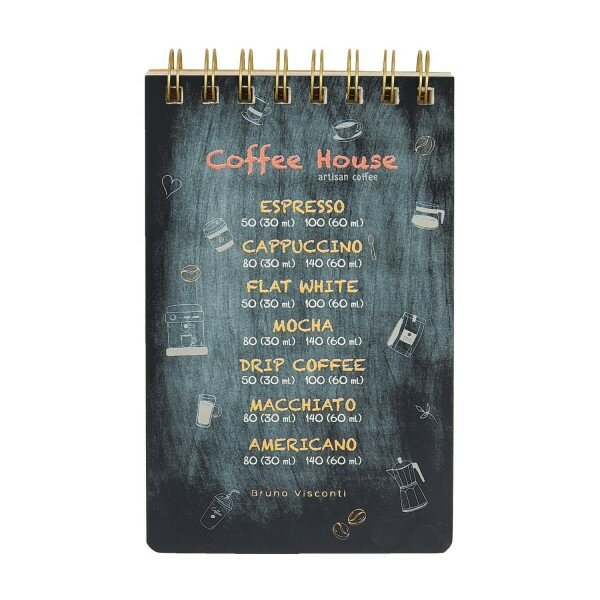 Coffee House
artisan coffee
ESPRESSO
50 (30 ml) 100 (60 ml)
CAPPUCCINO
80 (30 ml) 140 (60 ml)
FLAT WHITE
50 (30 ml) 100 (60 ml)
MOCHA
80 (30 ml) 140 (60 ml)
DRIP COFFEE
50 (30 ml) 100 (60 ml)
MACCHIATO
80 (30 ml) 140 (60 ml)
AMERICANO
80 (30 ml) 140 (60 ml)
Bruno Visconti